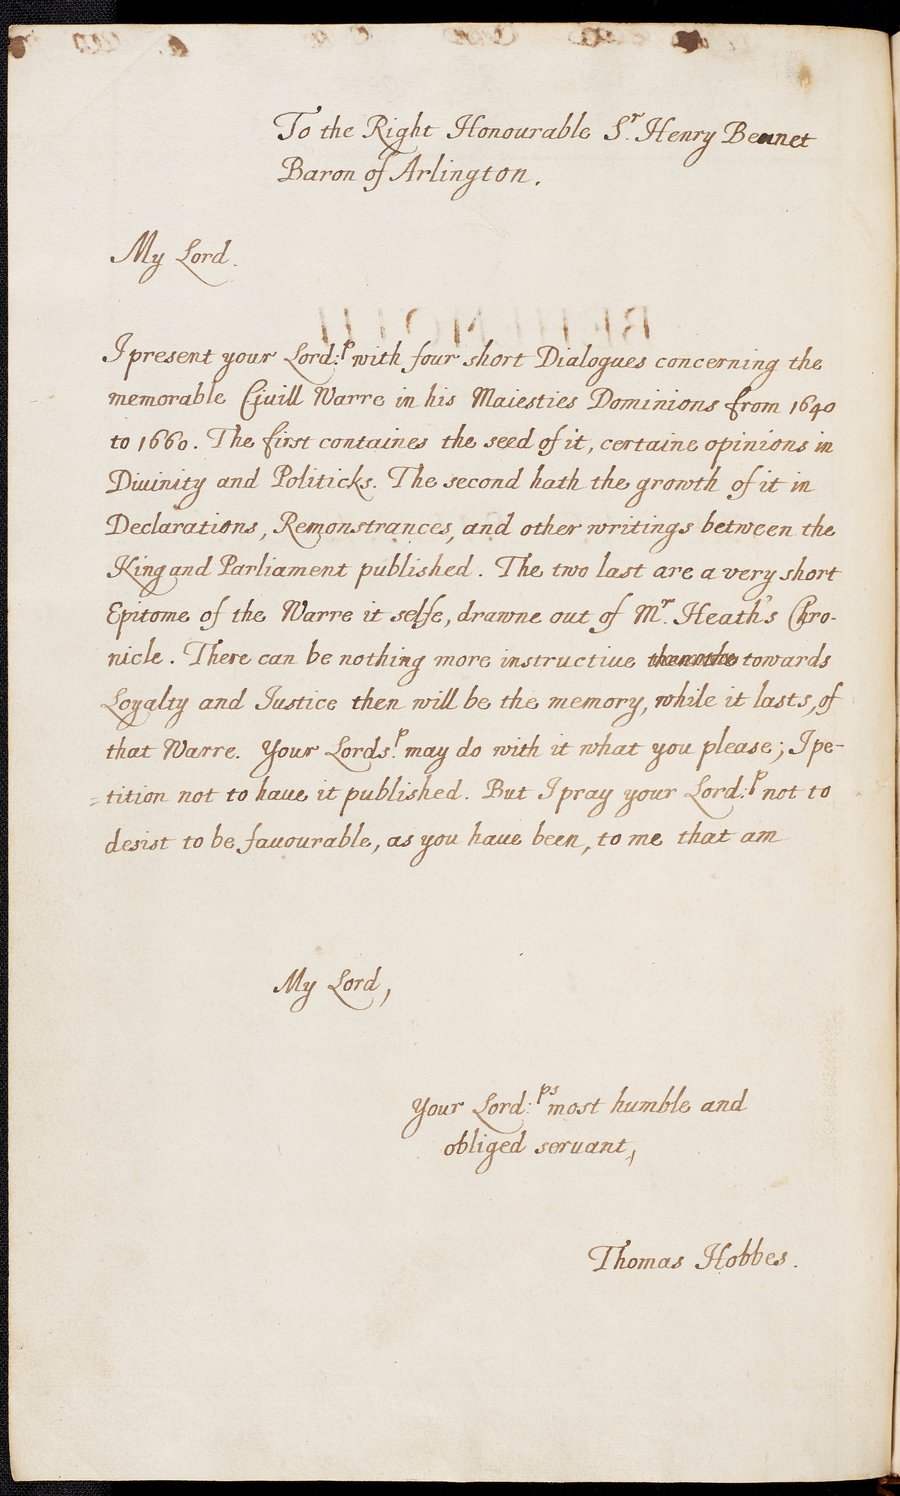 To the Right Honourable Sr. Henry Bennet
Baron of Arlington.
My Lord.
I present your Lord:p with four short Dialogues concerning the
memorable Ciuill Warre in his Maiesties Dominions from 1640
to 1660. The first containes the seed of it, certaine opinions in
Diuinity and Politicks. The second hath the growth of it in
Declarations, Remonstrances, and other writings between the
King and Parliament published. The two last are a very short
Epitome of the Warre it selfe, drawne out of Mr. Heath's Chro-
nicle. There can be nothing more instructiue towards
Loyalty and Justice then will be the memory, while it lasts, of
that Warre. Your Lords:p may do with it what you please; I pe-
=tition not to haue it published. But I pray your Lord:p not to
desist to be fauourable, as you haue been, to me that am
My Lord,
Your Lord:ps most humble and
obliged seruant,
Thomas Hobbes.